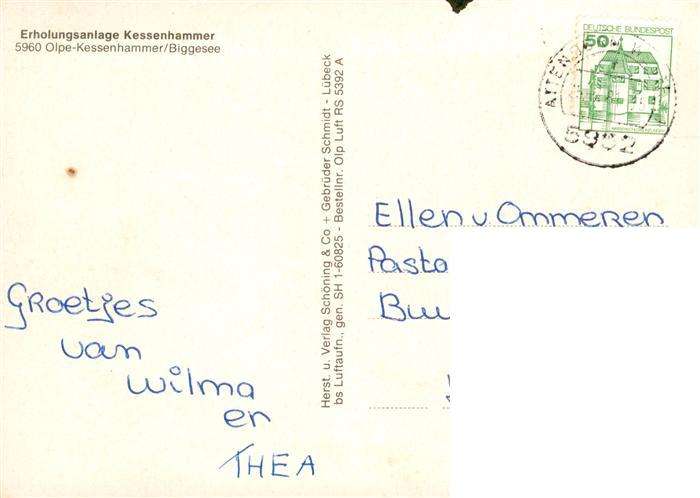 Erholungsanlage Kessenhammer
5960 Olpe-Kessenhammer/Biggesee
DEUTSCHE BUNDESPOST
50
5952
Herst. u. Verlag Schöning & Co + Gebrüder Schmidt - Lübeck
bs Luftaufn., gen. SH 1-60825 - Bestellnr. Olp Luft RS 5392 A
Ellen v Ommeren
Groetjes
van
Wilma
en
THEA